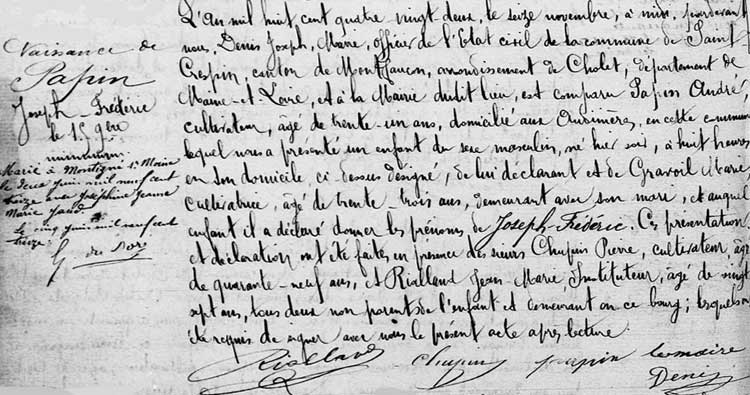 Naissance de
Papin
Joseph-Frédéric
le 15 9bre
minutum.
Marié à Montigné s/ Moine
le deux juin mil neuf cent
treize avec Joséphine Jeanne
Marie
le cinq juin mil neuf cent
treize
L'An mil huit cent quatre vingt deux, le seize novembre, à midi, pardevant
nous, Denis Joseph, Maire, officier de l'Etat civil de la commune de Saint
Crespin, canton de Montfaucon, arrondissement de Cholet, département de
Maine-et-Loire, et à la Mairie dudit lieu, est comparu Papin André,
cultivateur, âgé de trente-un ans, domicilié aux en cette commune
lequel nous a présenté un enfant de sexe masculin, né hier soir, à huit heures
en son domicile ci-dessus désigné, de lui déclarant et de Gravoil Marie,
cultivatrice, âgée de trente-trois ans, demeurant avec son mari, et auquel
enfant il a déclaré donner les prénoms de Joseph-Frédéric. Ces présentation
et déclaration ont été faites en présence des sieurs Chupin Pierre, cultivateur, âgé
de quarante-neuf ans, et Rialland Jean-Marie, Instituteur, âgé de vingt
sept ans, tous deux non parents de l'enfant et demeurant en ce bourg; lesquels ont
été requis de signer avec nous le présent acte après lecture.
Rialland Chupin papin le maire
Denis